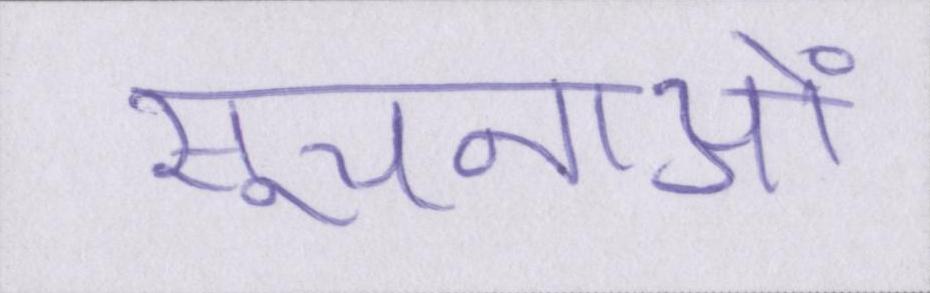 सूचनाओं